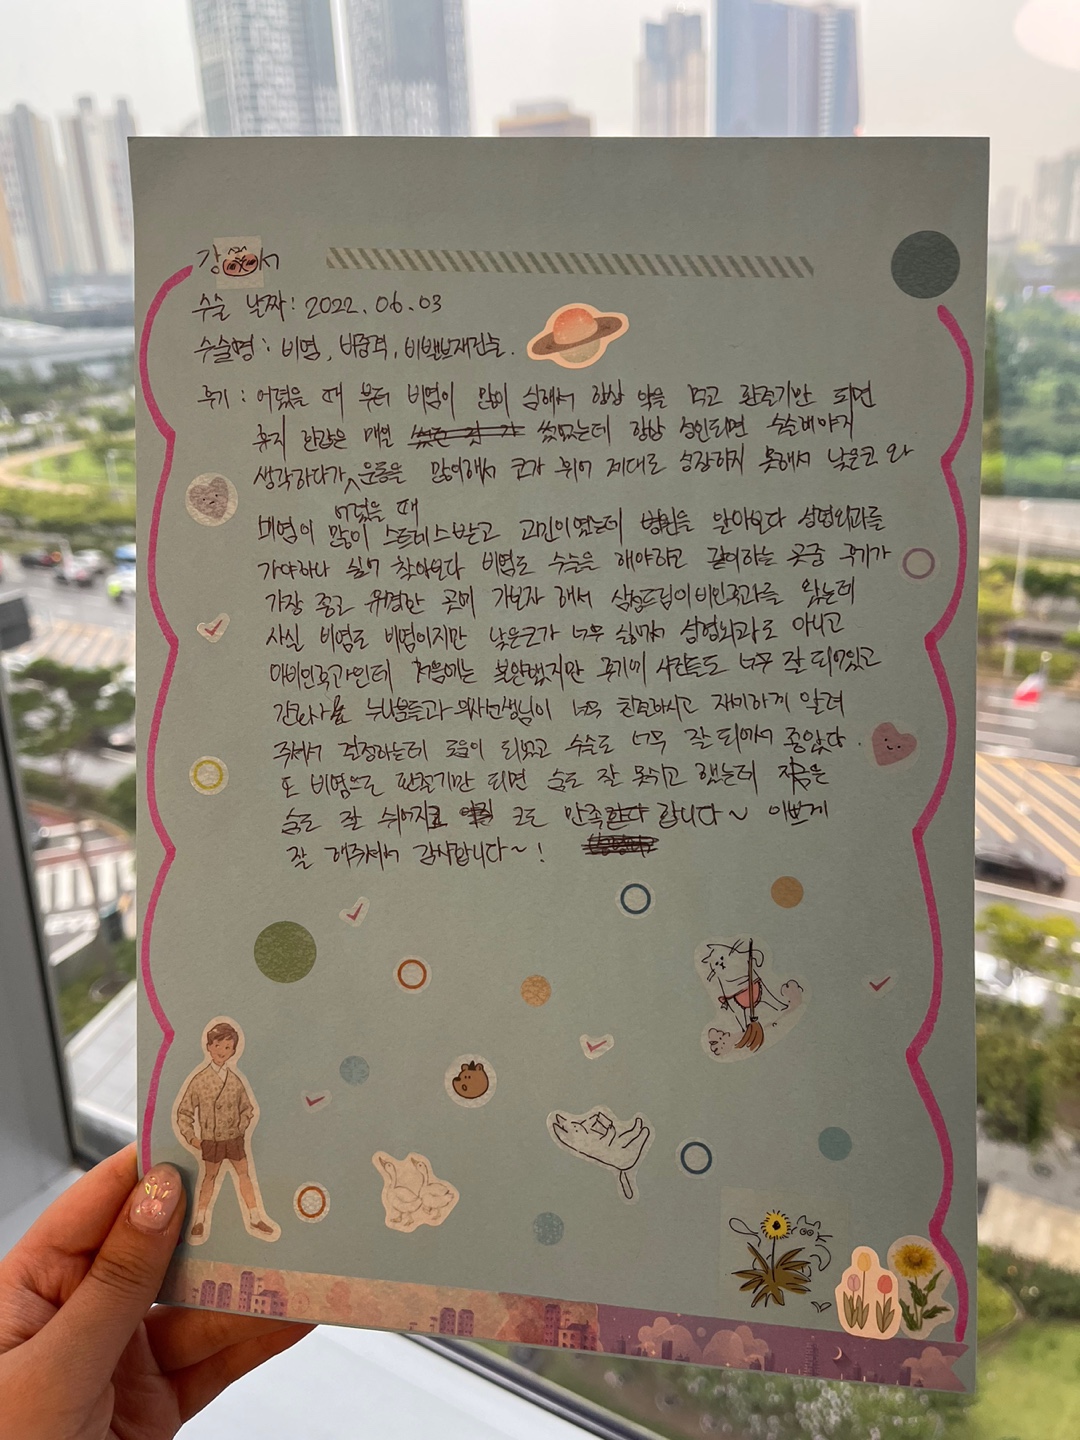 강 서
수술 날짜: 2022.06.03
수술명: 비염, 비중격, 비밸브재건술.
후기: 어렸을 때 부터 비염이 많이 심해서 항상 약을 먹고 환절기만 되면
휴지 한장은 매일 썼었는데 항상 성인되면 수술해야지
생각하다가, 운동을 많이해서 코가 휘어 제대로 성장하지 못해서 낮은코 와
어렸을 때
비염이 많이 스트레스받고 고민이였는데 병원을 알아보다 성형외과를
가야하나 싶어 찾아보다 비염도 수술을 해야하고 같이하는 곳중 후기가
가장 좋고 유명한 곳에 가보자 해서 삼성드림이비인후과를 왔는데
사실 비염도 비염이지만 낮은코가 너무 싫어서 성형외과도 아니고
이비인후과인데 처음에는 불안했지만 후기에 사람들도 너무 잘 되어있고
간호사 누나분들과 의사선생님이 너무 친절하시고 자세하게 알려
주셔서 결정하는데 도움이 되었고 수술도 너무 잘 되어서 좋았다.
또 비염으로 환절기만 되면 숨도 잘 못쉬고 했는데 지금은
숨도 잘 쉬어지고 코도 만족 합니다~ 이쁘게
잘 해주셔서 감사합니다~!